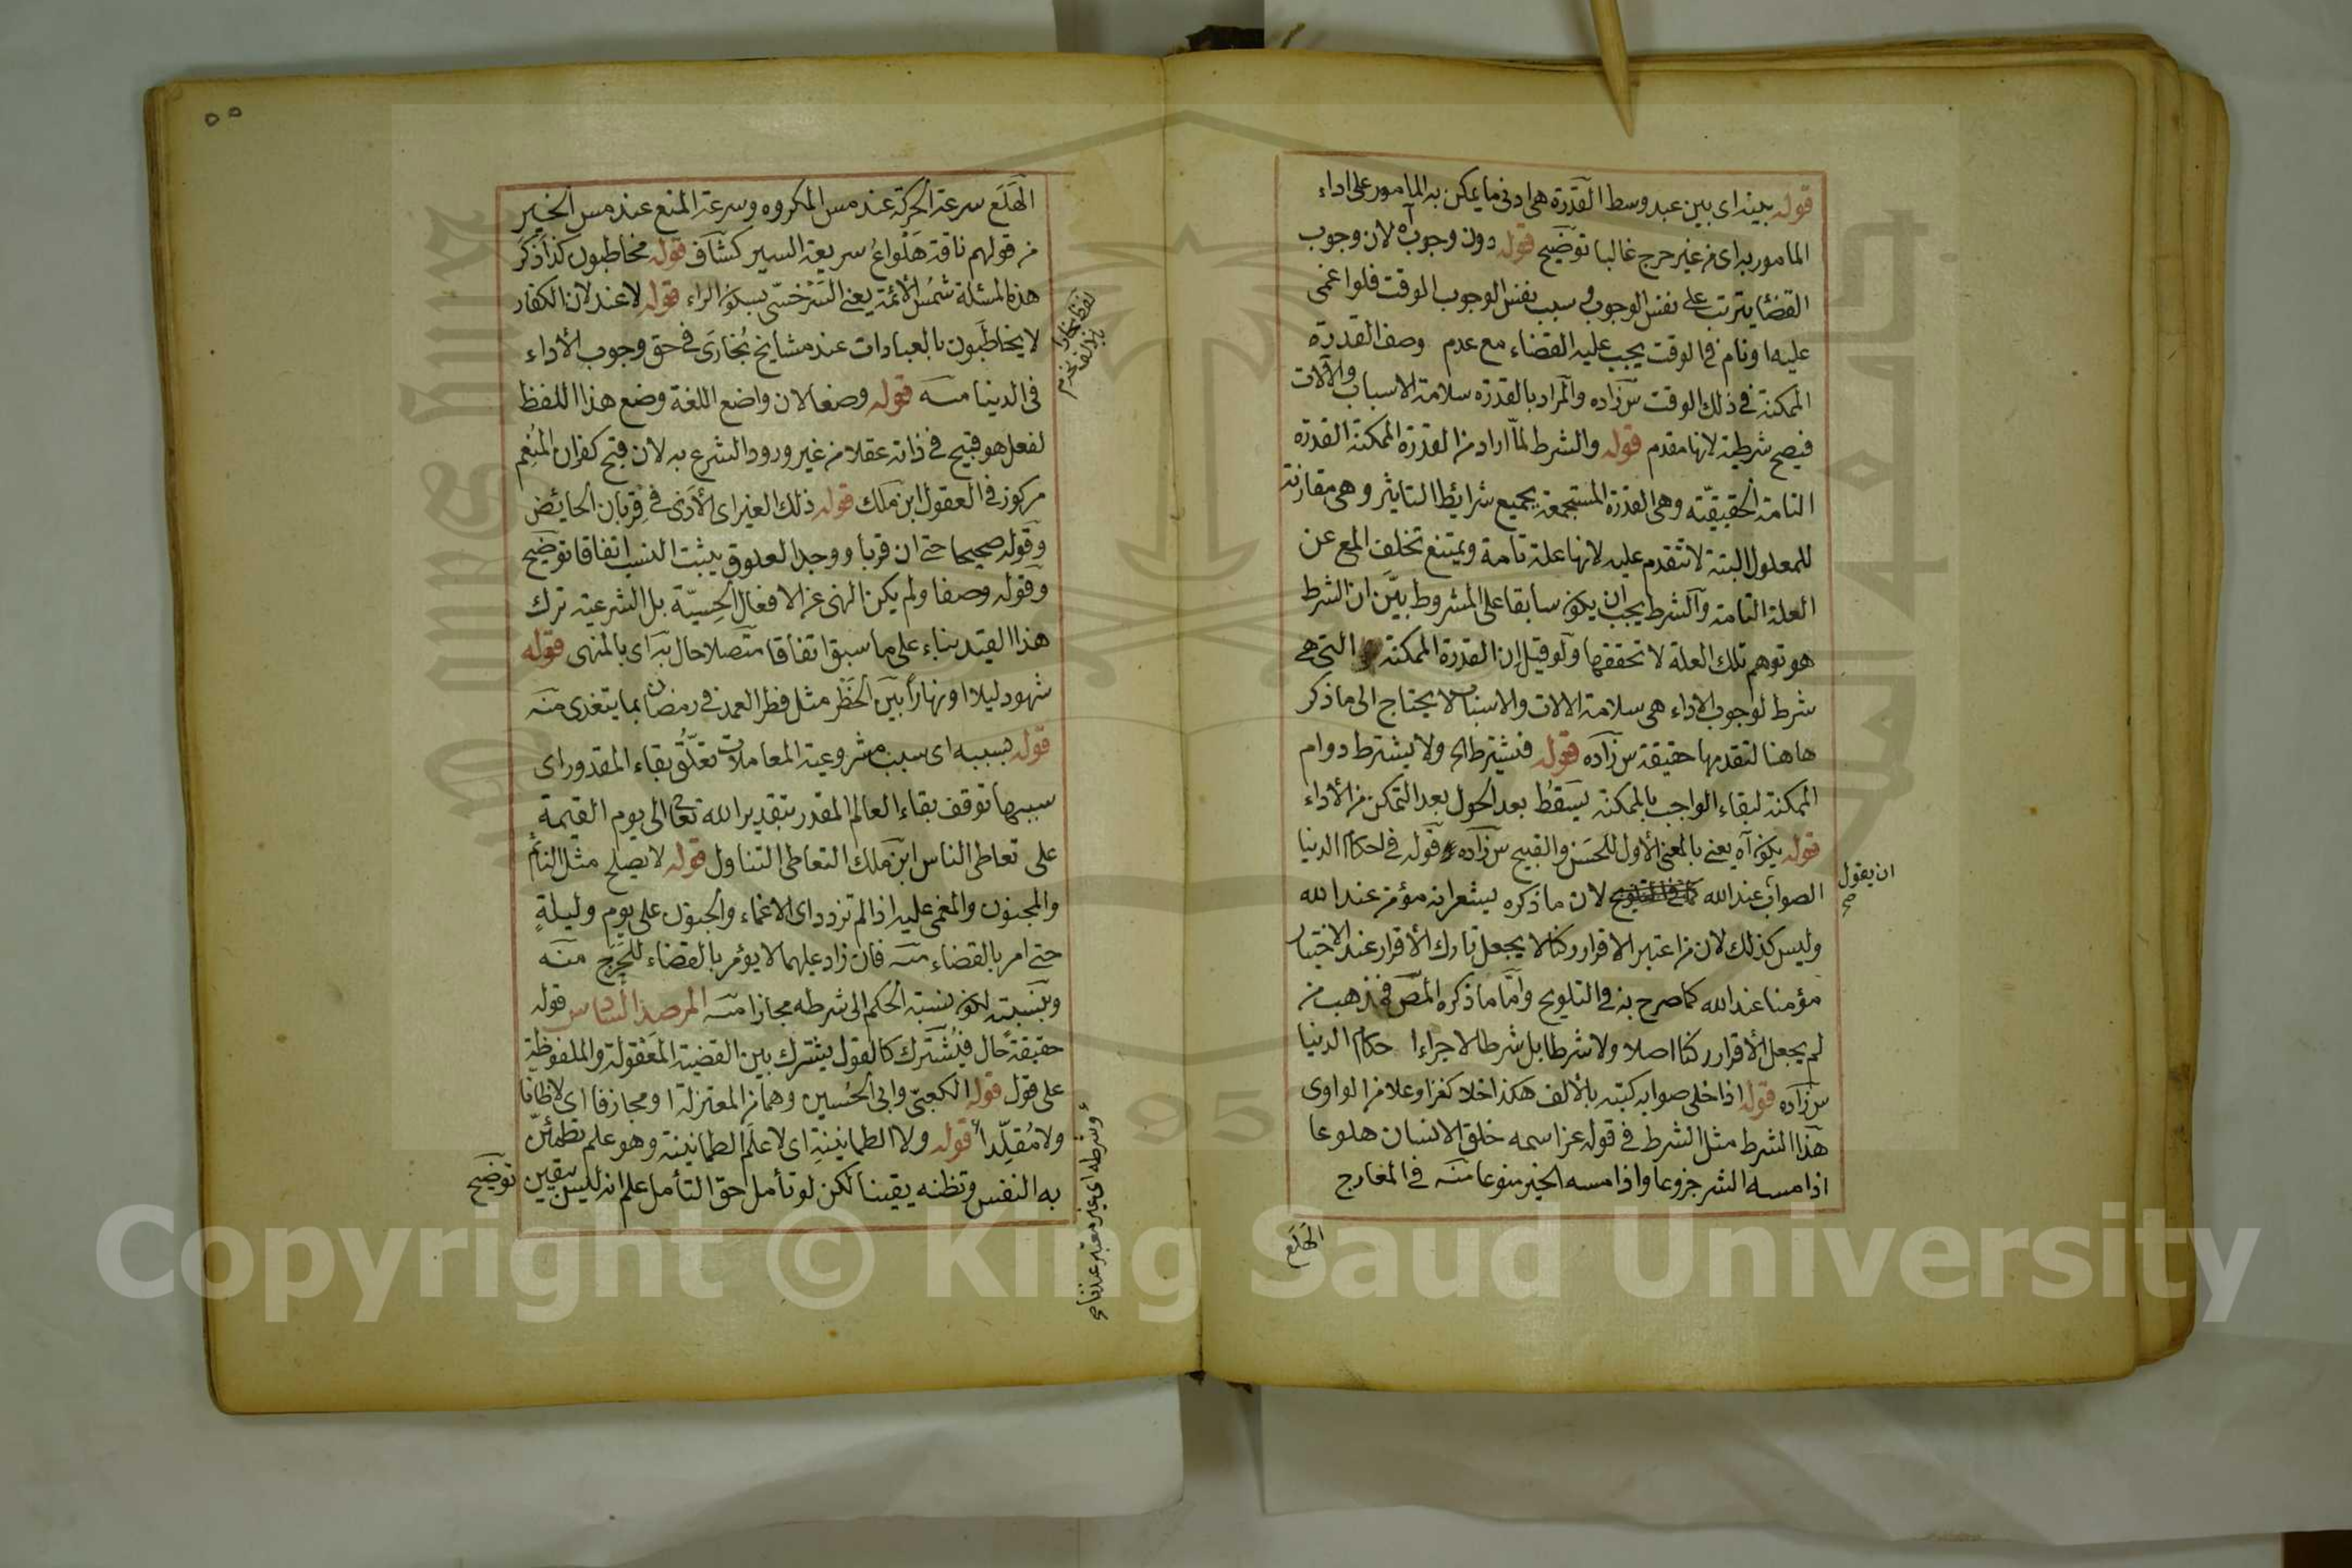 قوله بينه اى بين عبد وسط القدرة هى ادنى ما يمكن به المامور على اداء
المامور به اى من غير حرج غالبا توضيح قوله دون وجوب آه لان وجوب
القضا يترتب على نفس الوجوب وسبب نفس الوجوب الوقت فلو اغمى
عليه او نام فى الوقت يجب عليه القضاء مع عدم وصف القدرة
الممكنة فى ذلك الوقت س زاده والمراد بالقدرة سلامة الاسباب والآلات
فيصح شرطيته لانها مقدم قوله والشرط لما اراد من القدرة الممكنة القدرة
التامة الحقيقيّة وهى القدرة المستجمعة بجميع شرائط التاثير وهى مقارنة
للمعلول البتة لا تتقدم عليه لانها علة تامة ويمتنع تخلف المع عن
العلة التامة والشرط يجب ان يكون سابقا على المشروط بيّن ان الشرط
هو توهم تلك العلة لا تحققها ولو قيل ان القدرة الممكنة التى هى
شرط لوجوب الاداء هى سلامة الالات والاسباب لا يحتاج الى ما ذكر
هاهنا لتقدمها حقيقة س زاده قوله فيشترط الخ ولا يشترط دوام
الممكنة لبقاء الواجب بالممكنة يسقط بعد الحول بعد التمكن من الأداء
قوله يكون آه يعنى بالمعنى الأول للحسن والقبيح س زاده قوله فى احكام الدنيا
الصواب عند الله لان ما ذكره يشعر انه مؤمن عند الله
ان يقول
صح
وليس كذلك لان من اعتبر الاقرار ركنا لا يجعل تارك الأقرار عند الاختيار
مؤمنا عند الله كما صرح به فى التلويح وامّا ما ذكره المص فمذهب من
لم يجعل الأقرار ركنا اصلا ولا شرطا بل شرطا لاجراء احكام الدنيا
س زاده قوله اذا خلى صوابه كتبته بالألف هكذا خلا كغزا وعلا من الواوى
هذا الشرط مثل الشرط فى قوله عز اسمه خلق الانسان هلوعا
اذا مسه الشر جزوعا واذا مسه الخير منوعا منه فى المعارج
الهَلَع
٥٥
الهَلَع سرعة الحركة عند مس المكروه وسرعة المنع عند مس الخير
من قولهم ناقة هَلْواع سريعة السير كشاف قوله مخاطبون كذا ذكر
هذه المسئلة شمس الأئمة يعنى السّرخسى بسكون الراء قوله لا عند لان الكفار
لا يخاطَبون بالعبادات عند مشايخ بُخارَى فى حق وجوب الأداء
لفظ بخارا
فى الدنيا منه قوله وضعا لان واضع اللغة وضع هذا اللفظ
لفعل هو قبيح فى ذاته عقلا من غير ورود الشرع به لان قبح كفران المُنعِم
مركوز فى العقول ابن ملك قوله ذلك الغير اى الأذى فى قربان الحائض
وقوله صحيحا حتى ان قربا ووجد العلوق يثبت النسب اتفاقا توضيح
وقوله وصفا ولم يكن النهى عن الافعال الحِسيّة بل الشرعية ترك
هذا القيد بناء على ما سبق اتفاقا متصلا حال به اى بالمنهى قوله
شهود ليلا او نهارا بيّن الحَظْر مثل فطر العمد فى رمضان بما يتغذى منه
قوله بسببه اى سبب مشروعية المعاملات تعلّق بقاء المقدور اى
سببها توقف بقاء العالم المقدر بتقدير الله تعالى الى يوم القيمة
على تعاطى الناس ابن ملك التعاطى التناول قوله لا يصلح مثل النائم
والمجنون والمغمى عليه اذا لم تزدد اى الاغماء والجنون على يوم وليلةٍ
حتى امر بالقضاء منه فان زاد عليهما لا يؤمر بالقضاء للحَرَج منه
وبنسبته لكون نسبته الحكم الى شرطه مجازا منه المرصد السادس قوله
حقيقةً حال فيُشترك كالقول يشترك بين القضية المعقولة والملفوظة
على قول قوله الكعبىّ وابى الحُسين وهما من المعتزلة او مجازفا اى لا ظانا
ولا مُقلِّدا قوله ولا الطمانينةِ اى لا علم الطمانينة وهو علم تطمئنّ
وشرطه اى غير معتبر عندنا صح
به النفس وتظنه يقينا لكن لو تأمل حق التأمل علم انه ليس بيقين توضيح
Copyright © King Saud University